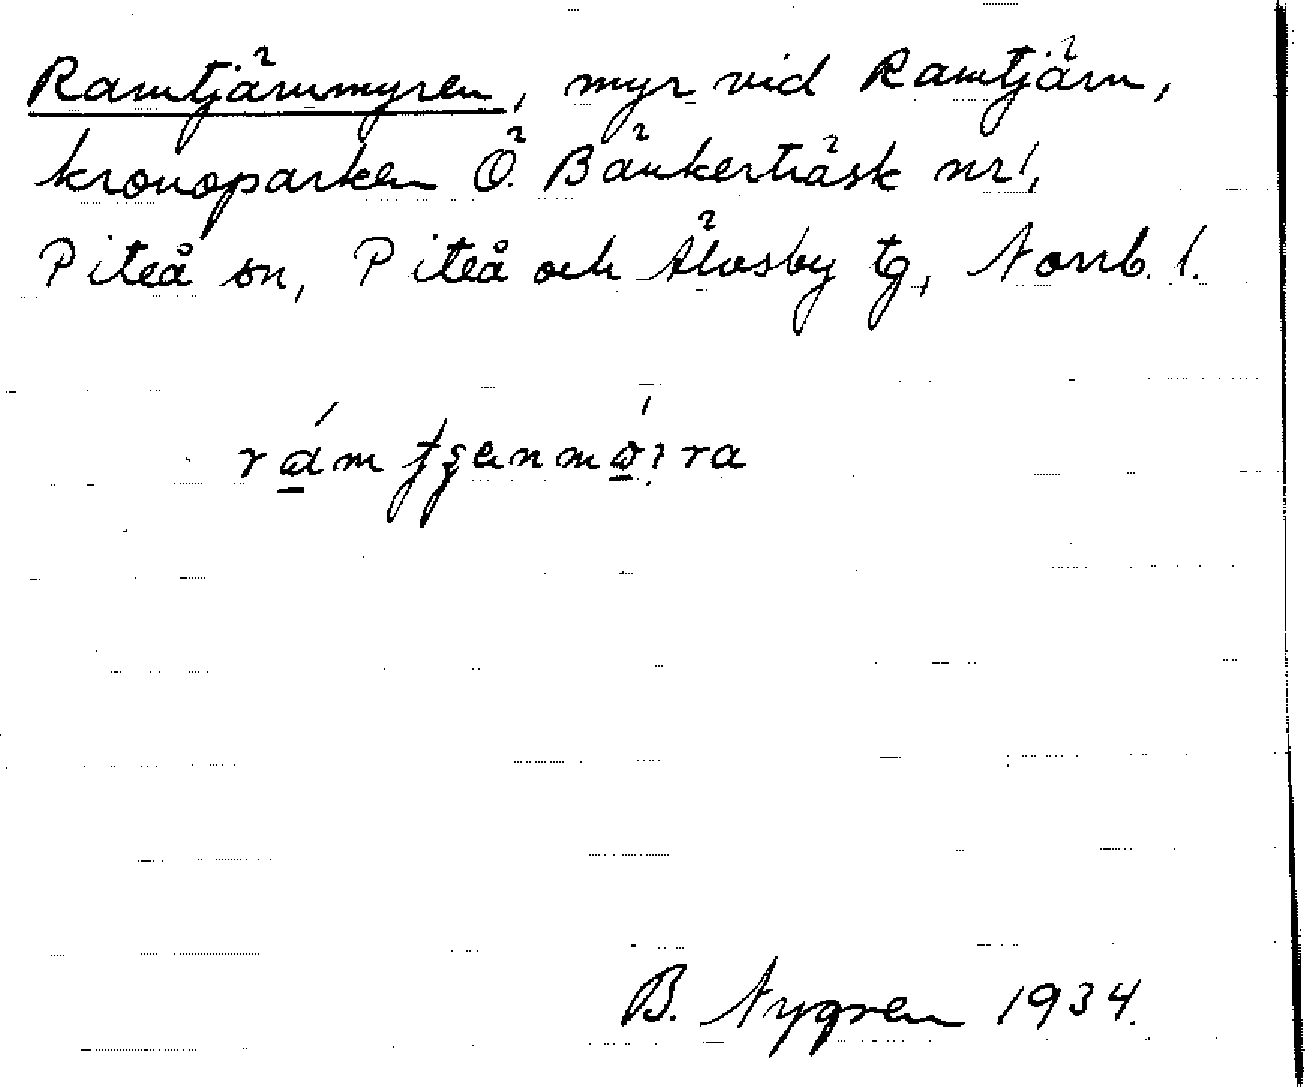 Ramtjärnmyren, myr vid Ramtjärn,
kronoparken Ö. Bänkerträsk nr 1,
Piteå sn, Piteå och Älvsby tg, Norrb. l.
B. Nygren 1934.